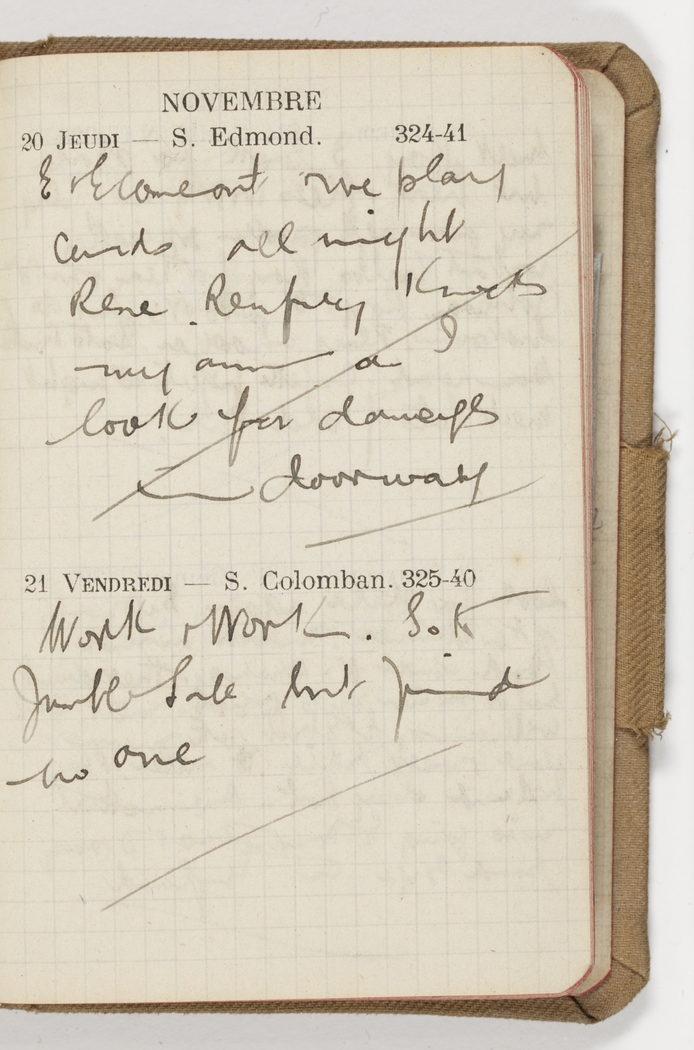 NOVEMBRE
20 JEUDI — S. Edmond. 324-41
E & E come out & we play
Cards all night
Rene Renfrey Knocks
my arm as I
look for damage
in doorway
21 VENDREDI — S. Colomban. 325-40
Work & Work. Go to
Sale but find
no one